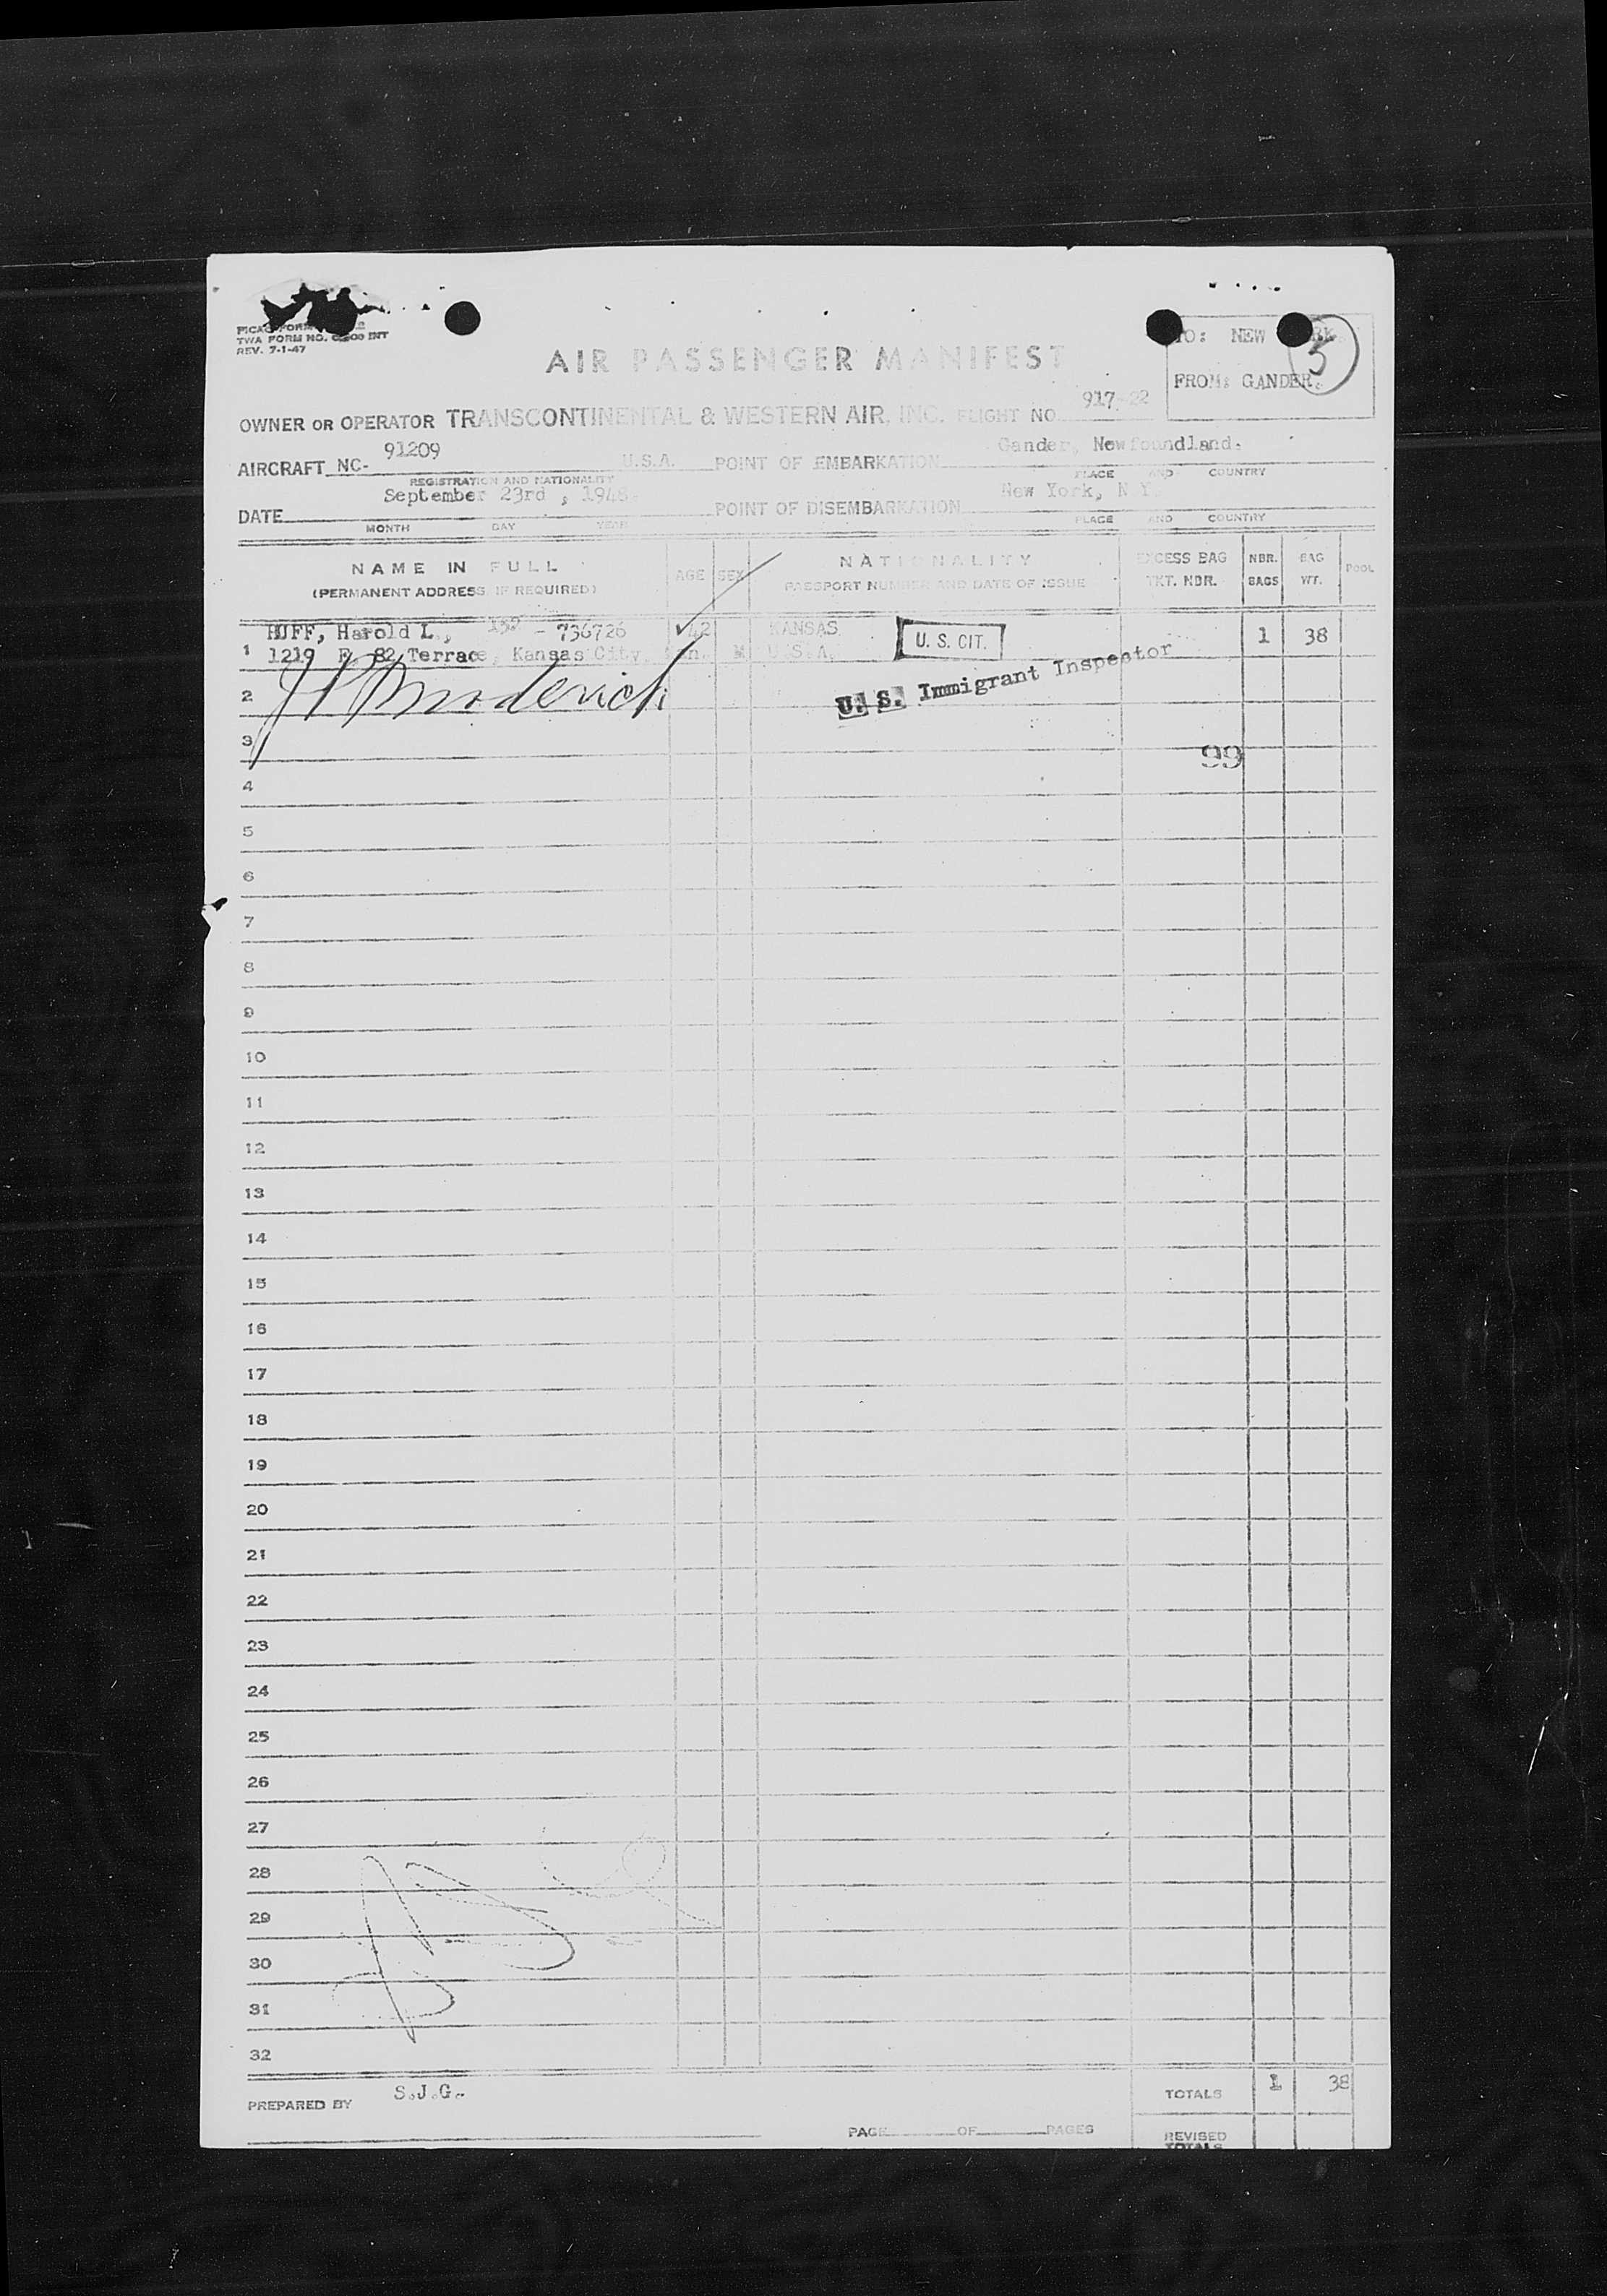 TWA FORM NO.
REV. 7-1-47
TO: NEW
5
FROM: GANDER.
AIR PASSENGER MANIFEST
OWNER OR OPERATOR TRANSCONTINENTAL & WESTERN AIR, INC. FLIGHT NO. 917-22
AIRCRAFT NC- 91209 U.S.A. POINT OF EMBARKATION Gander, Newfoundland.
REGISTRATION AND NATIONALITY PLACE AND COUNTRY
DATE September 23rd , 1948. POINT OF DISEMBARKATION New York, N.Y.
MONTH DAY YEAR PLACE AND COUNTRY
NAME IN FULL AGE SEX NATIONALITY EXCESS BAG NBR. BAG POOL
(PERMANENT ADDRESS IF REQUIRED) PASSPORT NUMBER AND DATE OF ISSUE TKT. NBR. BAGS WT.
HUFF, Harold L., 132 - 736726 42 KANSAS U. S. CIT. 1 38
1 1219 E 82 Terrace, Kansas City, M U.S.A.
2 U. S. Immigrant Inspector
3
99
4
5
6
7
8
9
10
11
12
13
14
15
16
17
18
19
20
21
22
23
24
25
26
27
28
29
30
31
32
PREPARED BY S.J.G. TOTALS 1 38
PAGE OF PAGES REVISED
TOTALS